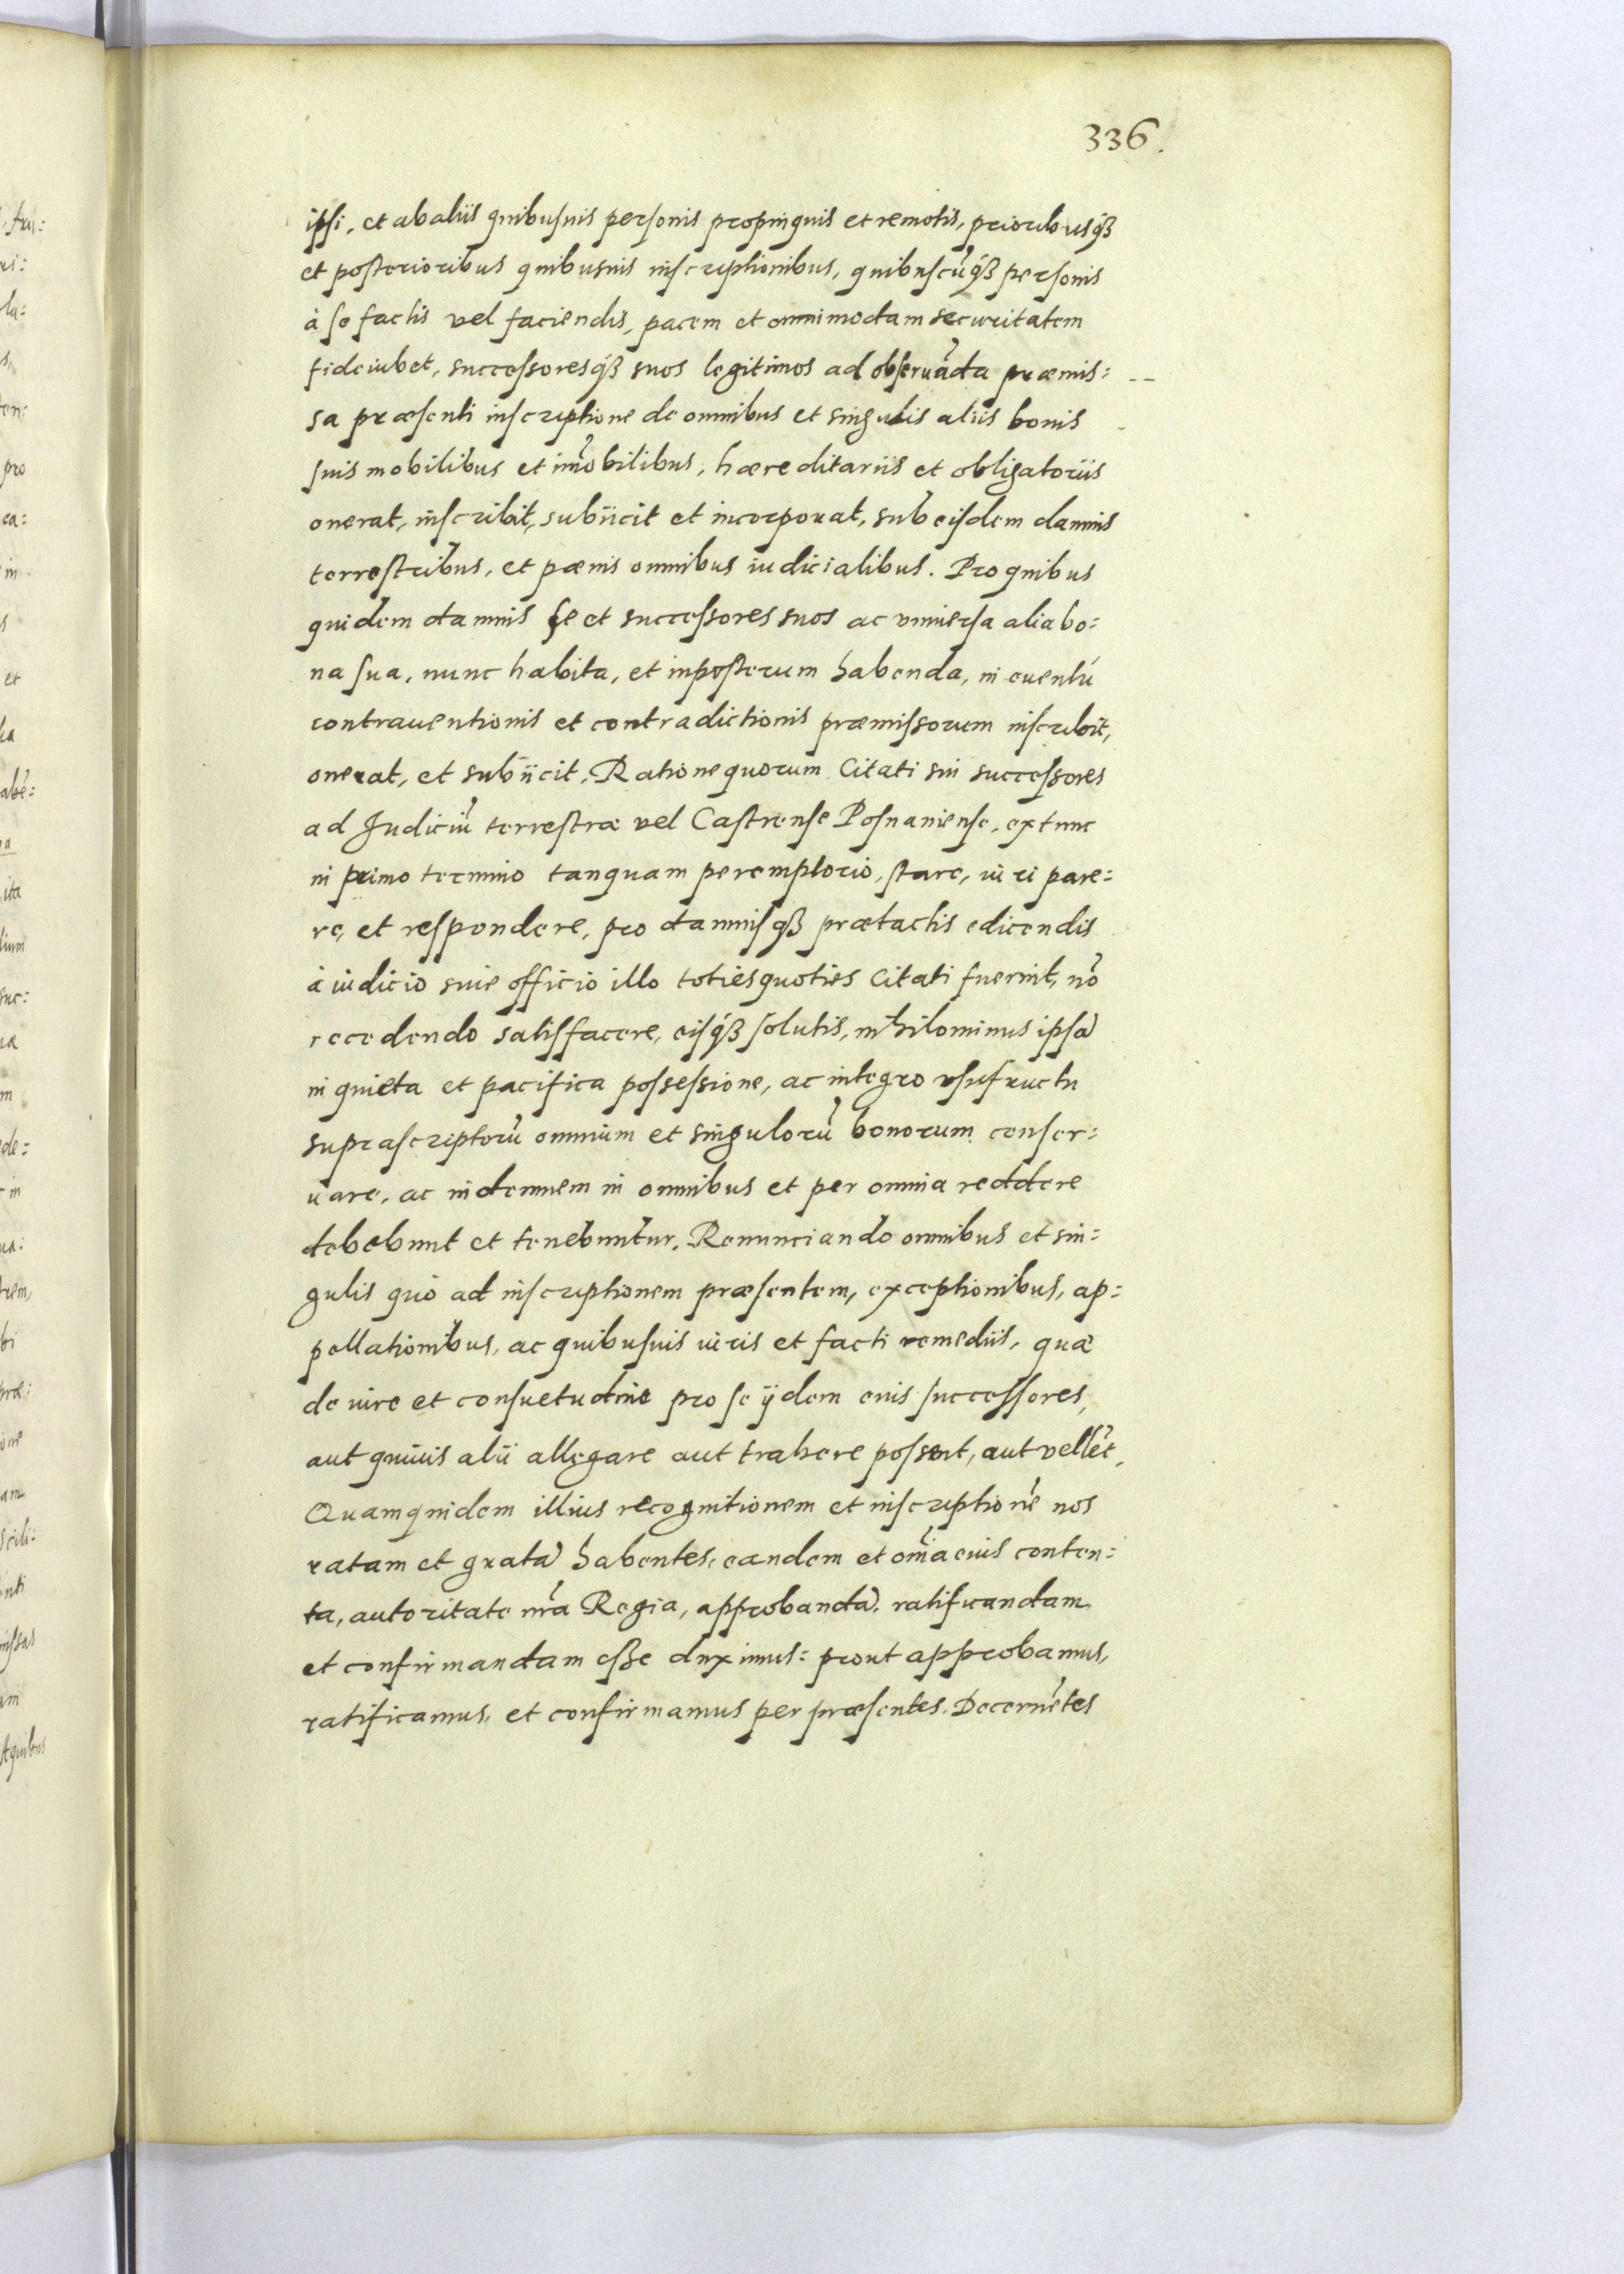 336.
ipsi, et ab aliis quibusuis personis propinquis et remotis, prioribusq́ꝫ
et posterioribus quibusuis inscriptionibus, quibuscũq́ꝫ personis
à se factis vel faciendis, pacem et omnimodam securitatem
fideiubet, successoresq́ꝫ suos legitimos ad obseruãda præmis:
sa præsenti inscriptione de omnibus et singulis aliis bonis
suis mobilibus et im̃obilibus, hæreditariis et obligatoriis
onerat, inscribit, subiicit et incorporat, sub eisdem damnis
terrestribus, et pænis omnibus iudicialibus. Pro quibus
quidem damnis se et successores suos ac vniuersa alia bo:
na sua, nunc habita, et inposterum habenda, in euentú
contrauentionis et contradictionis præmissorum inscribit,
onerat, et subiicit, Ratione quorum Citati sui successores
ad Judiciũ terrestræ vel Castrense Posnaniense, extunc
in primo termino tanquam peremptorio, stare, iuri pare:
re, et respondere, pro damnisqꝫ prætactis edicendis
à iudicio siue officio illo totiesquoties Citati fuerint, nõ
recedendo satisfacere, eisq́ꝫ solutis, nihilominus ipsã
in quieta et pacifica possessione, ac integro vsufructu
suprascriptorũ omnium et singulorũ bonorum conser:
uare, ac indemnem in omnibus et per omnia reddere
debebunt et tenebuntur. Renunciando omnibus et sin:
gulis quò ad inscriptionem præsentem, exceptionibus, ap:
pellationibus, ac quibusuis iuris et facti remediis, quæ
de iure et consuetudine pro se ijdem eius successores,
aut quiuis alii allegare aut trahere possent, aut vellẽt,
Quamquidem illius recognitionem et inscriptionẽ nos
ratam et gratã habentes, eandem et om̃ia eius conten:
ta, autoritate nr̃a Regia, approbandã, ratificandam
et confirmandam eße duximus: prout approbamus,
ratificamus, et confirmamus per præsentes. Decernẽtes